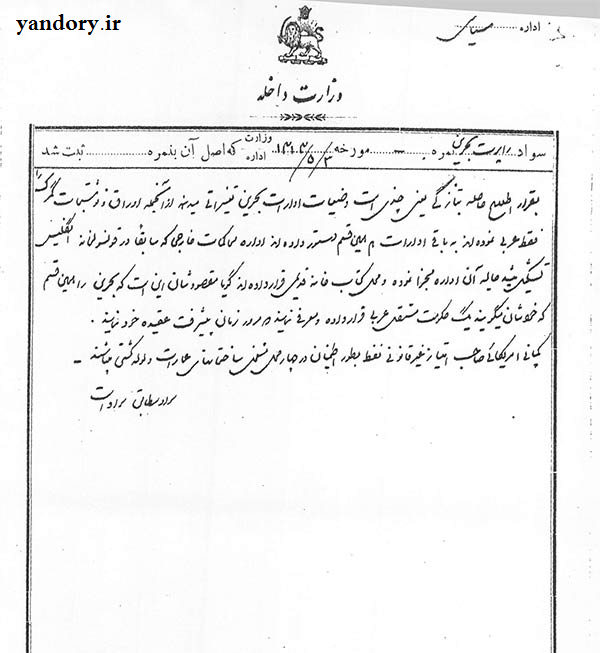 yandory.ir
اداره سیاسی
وزارت داخله
سواد راپرت بحرین نمره مورخه ۱۳۱۳/۵/۳ وزارت اداره که اصل آن بنمره ثبت شد
بقرار اطلاع حاصله بتازگی یعنی چندی است وضعیات ادارات بحرین تغییراتی میدهند از آنجمله اوراق و نوشتجات گمرک را
فقط عربی نموده اند به باقی ادارات هم همین قسم دستور داده اند اداره محاکمات خارجی که سابقا در قونسولخانه انگلیس
تشکیل میشد حالیه آن اداره مجزا نموده و محل کتاب خانه قدیمی قرار داده اند گویا مقصودشان این است که بحرین را همین قسم
که خودشان میگویند یک حکومت مستقل عربی قرار داده و معرفی نمایند و بمرور زمان پیشرفت عقیده خود نمایند .
کمپانی امریکائی صاحب امتیاز غیر قانونی نفط بطور اطمینان در چهار محل مشغول ساختمانهای عمارات و لوله کشی میباشند –
سواد مطابق سواد است